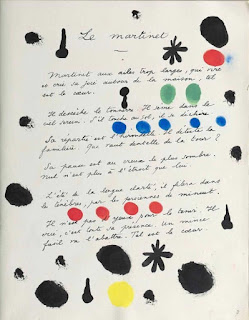 Le martinet
Martinet aux ailes trop larges, qui vire
et crie sa joie autour de la maison. Tel
est le cœur.
Il dessèche le tonnerre. Il sème dans le
ciel serein. S'il touche au sol, il se déchire.
Sa répartie est l'hirondelle. Il déteste la
familière. Que vaut dentelle de la tour ?
Sa pause est au creux le plus sombre.
Nul n'est plus à l'étroit que lui.
L'été de la longue clarté, il filera dans
les ténèbres, par les persiennes de minuit.
Il n'est pas d'yeux pour le tenir. Il
crie, c'est toute sa présence. Un mince
fusil va l'abattre. Tel est le cœur.